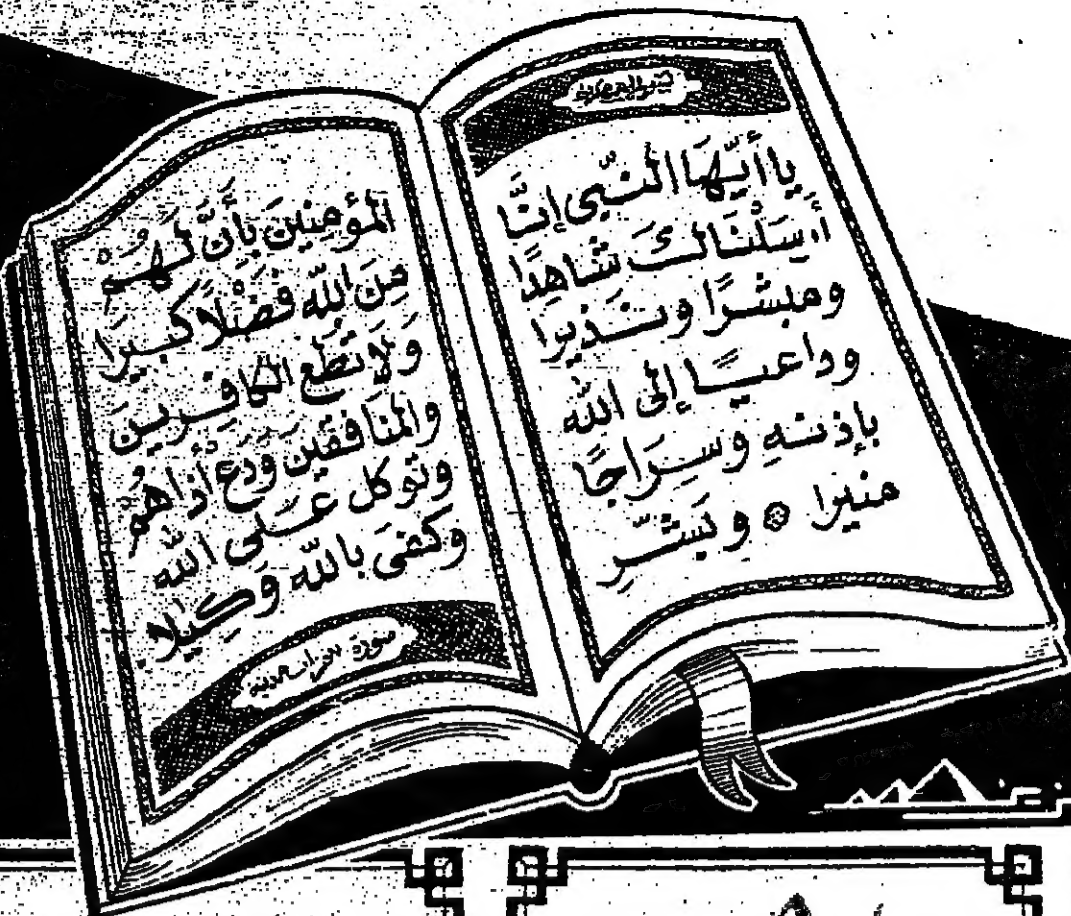 يا أَيُّهَا النَّبِي إنَّا
أرسَلْنَاكَ شَاهِدًا
ومبشرًا ونذيرا
وداعيًا إلى الله
بإذنهِ وسِرَاجًا
منيرا ۞ وبَشّرِ
المؤمِنِينَ بِأَنَّ لَهُمْ
مِنَ اللهِ فَضْلًا كبيرًا
وَلَا تُطِع الكافِرِينَ
والمنَافقينَ وَدَع أذَاهُمْ
وتوكل عَلَى الله
وكَفَى باللهِ وَكِيلا